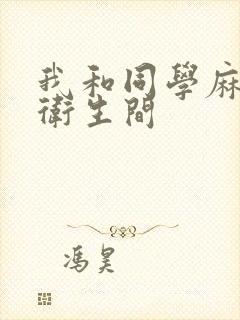 我和同學麻
衛生間
馮昊